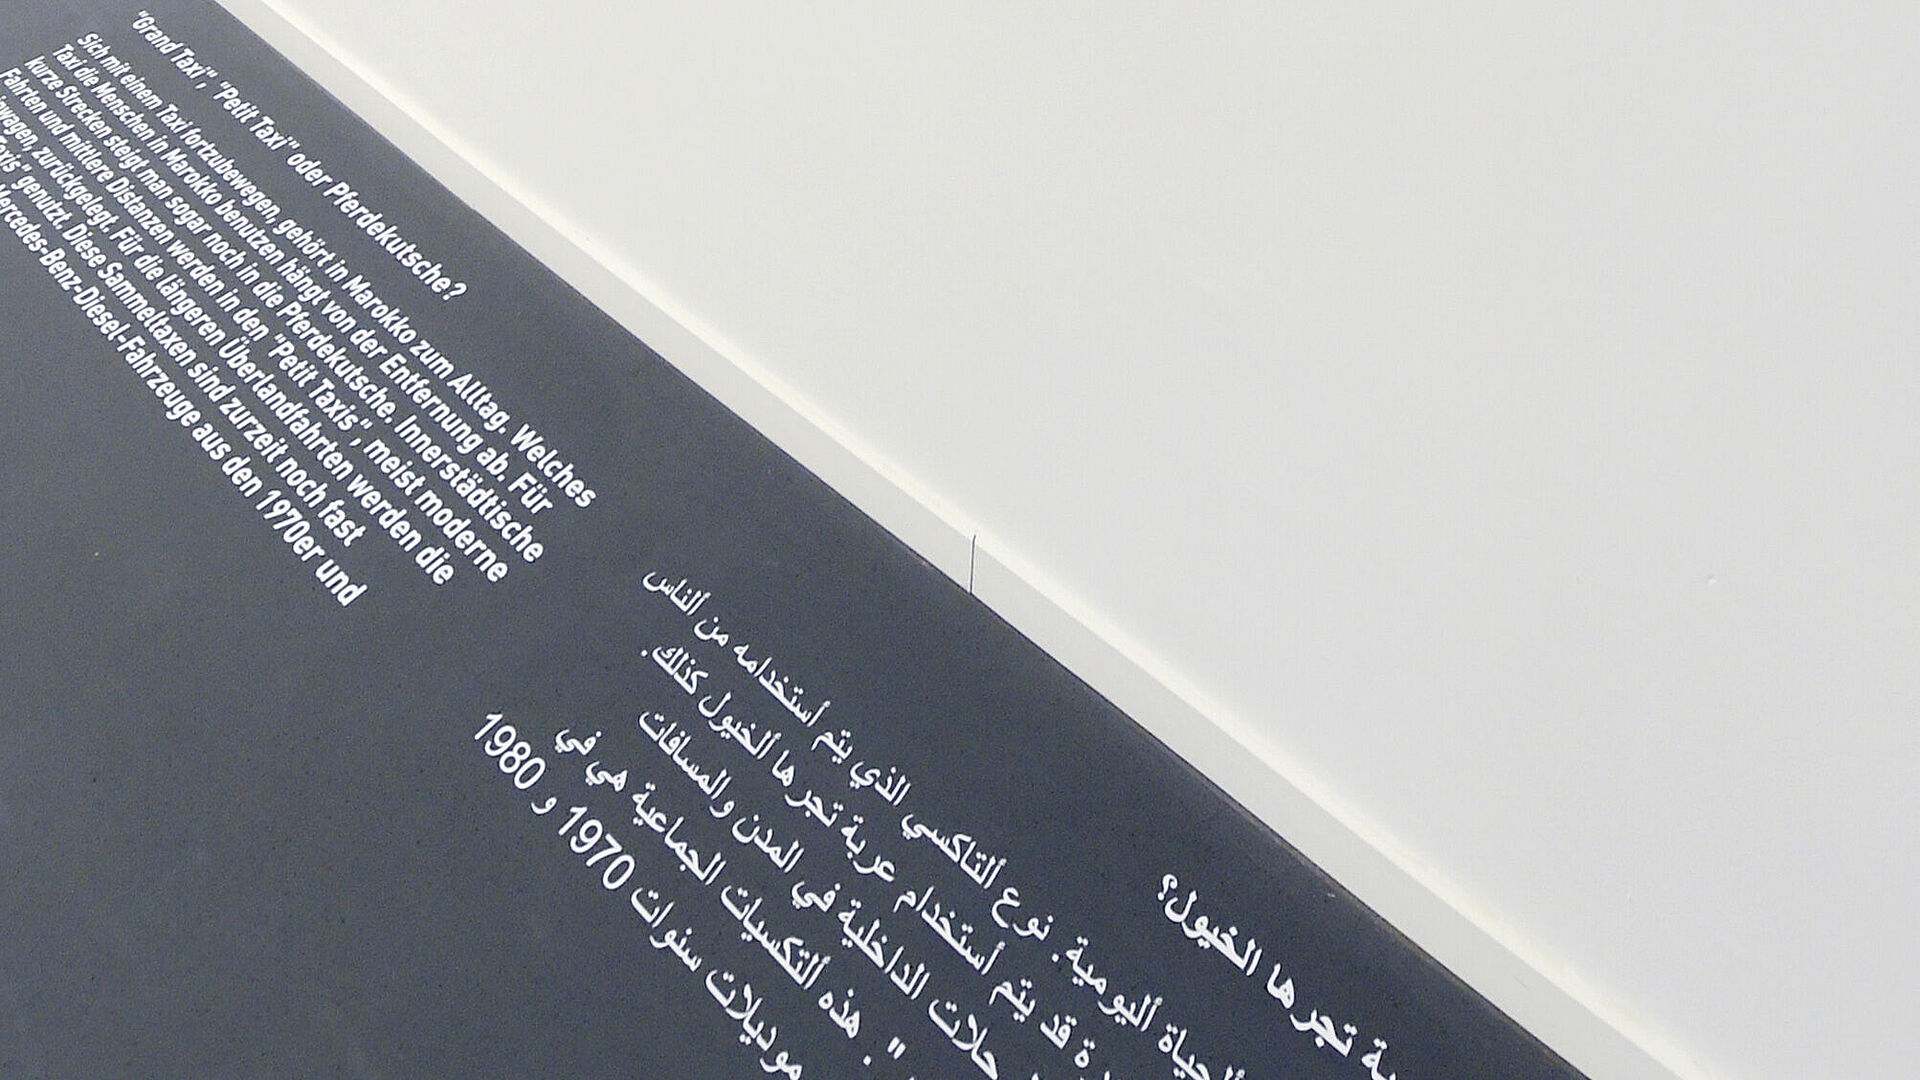 "Grand Taxi", "Petit Taxi" oder Pferdekutsche?
Sich mit einem Taxi fortzubewegen, gehört in Marokko zum Alltag. Welches
Taxi die Menschen in Marokko benutzen hängt von der Entfernung ab. Für
kurze Strecken steigt man sogar noch in die Pferdekutsche. Innerstädtische
Fahrten und mittlere Distanzen werden in den "Petit Taxis", meist moderne
zurückgelegt. Für die längeren Überlandfahrten werden die
genutzt. Diese Sammeltaxen sind zurzeit noch fast
Mercedes-Benz-Diesel-Fahrzeuge aus den 1970er und
تجرها الخيول؟
أليومية. نوع ألتاكسي الذي يتم أستخدامه من ألناس
قد يتم أستخدام عربة تجرها ألخيول كذلك.
الداخلية في المدن والمسافات
". هذه ألتكسيات الجماعية هي في
موديلات سنوات 1970 و 1980